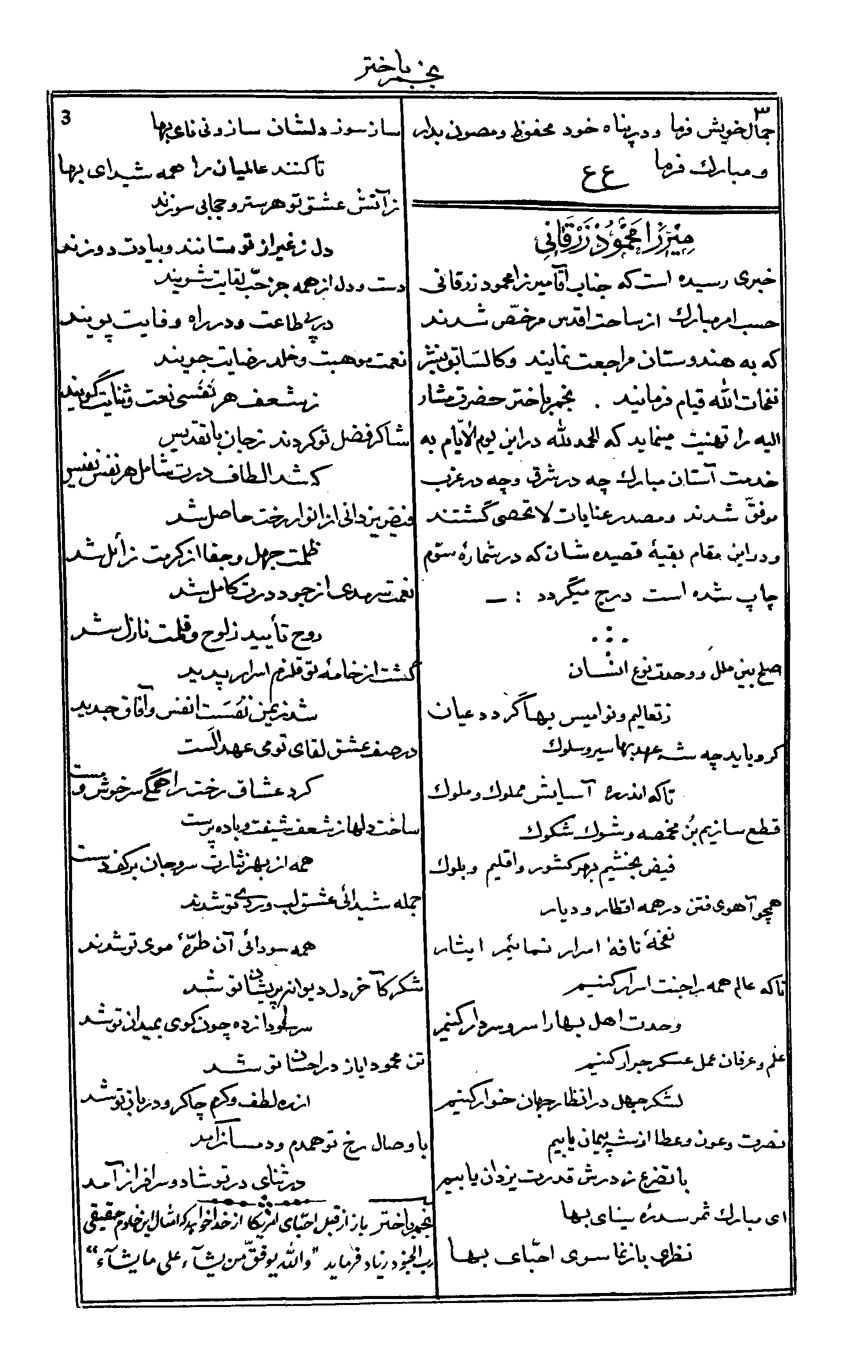 نجم باختر
۳
جمال خویش فرما و در پناه خود محفوظ و مصون بدار
و مبارك فرما ع ع
میرزا محمود زرقانی
خبری رسیده است که جناب آقا میرزا محمود زرقانی
حسب امر مبارك از ساحت اقدس مرخّص شدند
که به هندوستان مراجعت نمایند و کالسّابق بنشر
نفحات الله قیام فرمایند . نجم باختر حضرت مشار
الیه را تهنیت مینماید که الحمد لله در این یوم الأیّام به
خدمت آستان مبارك چه در شرق و چه در غرب
موفّق شدند و مصدر عنایات لا تحصی گشتند
و در این مقام بقیۀ قصیده شان که در شمارۀ سوّم
چاپ شده است درج میگردد : ــ
صلح بین ملل و وحدت نوع انسان
ز تعالیم و نوامیس بها گردد عیان
گرو باید چه شه عهد بها سیر و سلوك
تاکه اندر آسایش مملوك و ملوك
قطع سازیم بن مخمصه و شوك شکوك
فیض بخشیم بهر کشور و اقلیم و بلوك
همچو آهوی فتن در همه اقطار و دیار
نفخۀ نافۀ اسرار نمائیم ایثار
تاکه عالم همه را جنت ابرار کنیم
وحدت اهل بها را سر و سردار کنیم
علم و عرفان عمل عسکر جرار کنیم
لشکر جهل در انظار جهان خوار کنیم
نصرت و عون و عطا از شه پیمان یابیم
با تضرع ز درش قدرت یزدان یابیم
ای مبارك ثمر سدرۀ سینای بها
نظری باز نما سوی احبّای بها
3
ساز سوز دلشان ساز و نی نای بها
تا کنند عالمیان را همه شیدای بها
ز آتش عشق تو هر ستر و حجابی سوزند
دل ز غیر از تو ستانند و بیادت دوزند
دست و دل از همه جز حبّ لقایت شویند
در پی طاعت و در راه وفایت پویند
نعمت موهبت و خلد رضایت جویند
ز شعف هر نفسی نعت و ثنایت گویند
شاکر فضل تو کردند ز جان با تقدیس
که شد الطاف درت شامل هر نفس نفیس
فیض یزدانی از انوار رخت حاصل شد
ظلمت جهل و جفا از کرمت زائل شد
نعمت سرمدی از جود درت کامل شد
روح تأیید ز لوح و قلمت نازل شد
گشت از خامۀ تو قلزم اسرار پدید
شد ز یمن نفست انفس و آفاق جدید
در صف عشق لقای تو می عهد الست
کرد عشاق رخت را همگی سرخوش و مست
ساخت دلها ز شعف شیفته و باده پرست
همه از بهر نثارت سر و جان بر کف دست
جمله شیدائی عشق لب و روی تو شدند
همه سودائی آن طرّۀ موی تو شدند
شکر کآخر دل دیوانه پریشان تو شد
سر سودازده چون گوی بمیدان تو شد
تن محمود ایاز در احسان تو شد
از ره لطف و کرم چاکر و دربان تو شد
با وصال رخ تو همدم و دمساز آمد
در ثنای در تو شاد و سرافراز آمد
نجم باختر باز از قبل احبّای امریکا از خدا خواهد که امثال این خادم حقیقی
رب الجنود زیاد فرماید "والله یوفّق من یشآء علی ما یشآء"